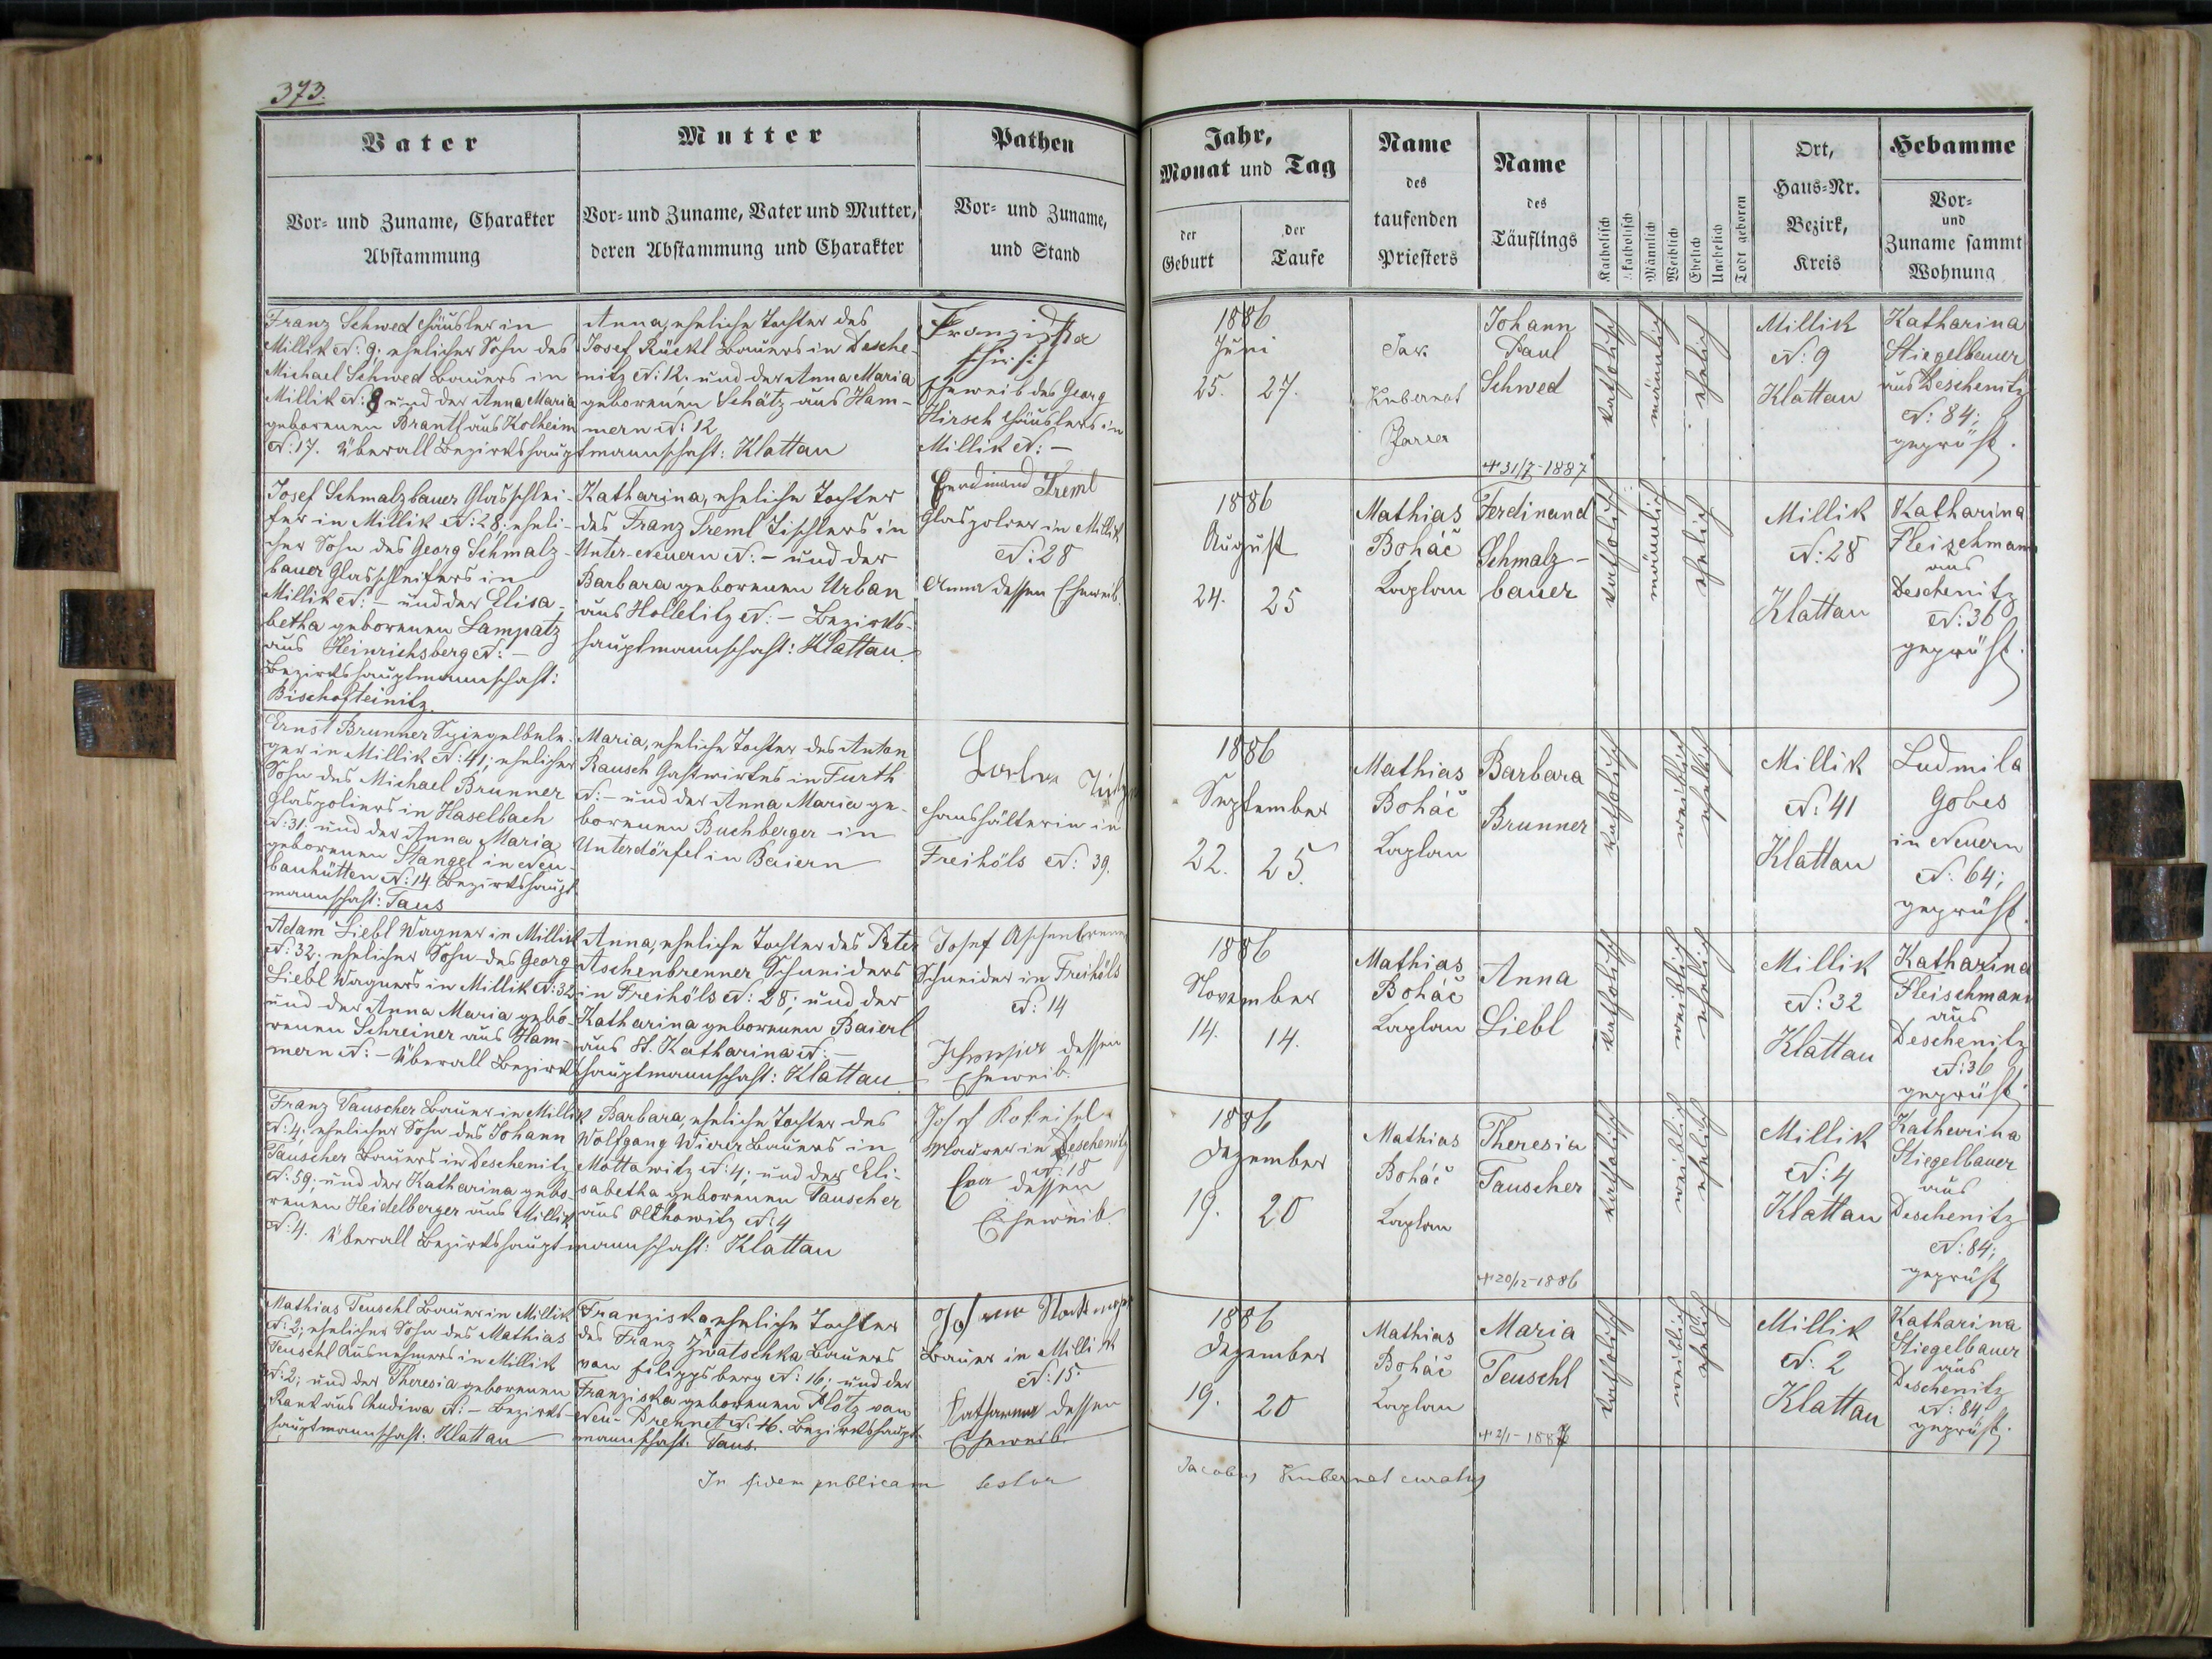 373.
Vater
Vor- und Zuname, Charakter
Abstammung
Mutter
Vor- und Zuname, Vater und Mutter,
deren Abstammung und Charakter
Pathen
Vor- und Zuname,
und Stand
Franz Schwed Häusler in
Millik N: 9; ehelicher Sohn des
Michael Schwed Bauers in
Millik N: 8 und der Anna Maria
geborenen Brantl aus Kolheim
N: 17. Überall Bezirkshaupt
Anna, eheliche Tochter des
Josef Rückl Bauers in Desche-
nitz N: 12. und der Anna Maria
geborenen Schätz aus Ham-
mern N: 12
mannschaft: Klattau
Franziska
Eheweib des Georg
Hirsch Häuslers in
Millik N: –
Josef Schmalzbauer Glasschlei-
fer in Millik N: 28; eheli-
cher Sohn des Georg Schmalz-
bauer Glasschleifers in
Millik N: – und der Elisa-
betha geborenen Lampatz
aus Heinrichsberg N: –
Bezirkshauptmannschaft:
Bischofteinitz.
Katharina, eheliche Tochter
des Franz Treml Tischlers in
Unter-Neuern N: – und der
Barbara geborenen Urban
aus Holletitz N: – Bezirks-
hauptmannschaft: Klattau.
Ferdinand Treml
Glaspolirer in Millik
N: 28
Anna dessen Eheweib.
Ernst Brunner Spiegelbele-
ger in Millik N: 41; ehelicher
Sohn des Michael Brunner
Glaspolierers in Haselbach
N: 31; und der Anna Maria
geborenen Stangel in Neu-
bauhütten N: 14 Bezirkshaupt
mannschaft: Taus
Maria, eheliche Tochter des Anton
Rausch Gastwirtes in Furth
N: – und der Anna Maria ge-
borenen Buchberger in
Unterdörfel in Baiern
Haushälterin in
Freihöls N: 39.
Adam Liebl Wagner in Millik
N: 32; ehelicher Sohn des Georg
Liebl Wagners in Millik N: 32
und der Anna Maria gebo-
renen Schreiner aus Ham-
mern N: – Überall Bezirks
Anna, eheliche Tochter des Peter
Aschenbrenner Schneiders
in Freihöls N: 28; und der
Katharina geborenen Baierl
aus St. Katharina N: –
hauptmannschaft: Klattau
Josef Aschenbrenner
Schneider in Freihöls
N: 14
dessen
Eheweib.
Franz Tauscher Bauer in Millik
N: 4; ehelicher Sohn des Johann
Tauscher Bauers in Deschenitz
N: 59; und der Katharina gebo-
renen Heidelberger aus Millik
N: 4. Überall Bezirkshauptmannschaft: Klattau
Barbara, eheliche Tochter des
Wolfgang Wierer Bauers in
Mottowitz N: 4; und der Eli-
sabetha geborenen Tauscher
aus Olchowitz N: 4
Josef Kokeisel
Maurer in Deschenitz
N: 18
Eva dessen
Eheweib.
Mathias Teuschl Bauer in Millik
N: 2; ehelicher Sohn des Mathias
Teuschl Ausnehmers in Millik
N: 2; und der Theresia geborenen
Rank aus Chudiwa N: – Bezirks-
hauptmannschaft: Klattau
Franziska eheliche Tochter
des Franz Zwatschka Bauers
von Filippsberg N: 16; und der
Franziska geborenen Plötz von
Neu-Brennet N: 16. Bezirkshaupt-
mannschaft: Taus.
Bauer in Millik
N: 15.
Katharina dessen
Eheweib.
In fidem publicam testor
Jahr,
Monat und Tag
der
Geburt
der
Taufe
Name
des
taufenden
Priesters
Name
des
Täuflings
Katholisch
Akatholisch
Männlich
Weiblich
Ehelich
Unehelich
Todt geboren
Ort,
Haus-Nr.
Bezirk,
Kreis
Hebamme
Vor-
und
Zuname sammt
Wohnung
1886
Juni
25. 27.
Jak.
Kubernat
Pfarrer
Johann
Paul
Schwed
31/7-1887
katholisch
männlich
ehelich
Millik
N: 9
Klattau
Katharina
Stiegelbauer
aus Deschenitz
N: 84;
geprüft.
1886
August
24. 25
Mathias
Boháč
Kaplan
Ferdinand
Schmalz-
bauer
katholisch
männlich
ehelich
Millik
N: 28
Klattau
Katharina
Fleischmann
aus
Deschenitz
N: 36
geprüft.
1886
September
22. 25.
Mathias
Boháč
Kaplan
Barbara
Brunner
katholisch
weiblich
ehelich
Millik
N: 41
Klattau
Ludmila
Gobes
in Neuern
N: 64;
geprüft.
1886
November
14. 14.
Mathias
Boháč
Kaplan
Anna
Liebl
katholisch
weiblich
ehelich
Millik
N: 32
Klattau
Katharina
Fleischmann
aus
Deschenitz
N: 36
geprüft.
1886
Dezember
19. 20
Mathias
Boháč
Kaplan
Theresia
Tauscher
20/12-1886
katholisch
weiblich
ehelich
Millik
N: 4
Klattau
Katharina
Stiegelbauer
aus
Deschenitz
N: 84;
geprüft
1886
Dezember
19. 20
Mathias
Boháč
Kaplan
Maria
Teuschl
2/1-1887
katholisch
weiblich
ehelich
Millik
N: 2
Klattau
Katharina
Stiegelbauer
aus
Deschenitz
N: 84
geprüft.
Jacobus Kubernat curatus